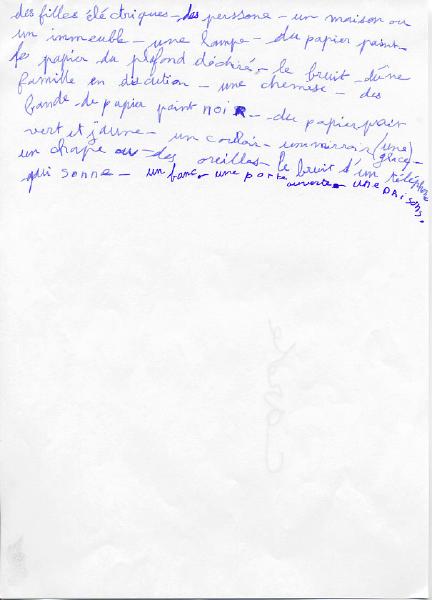 des filles éléctriques - des perssone - un maison ou
un immeuble - une lampe - du papier paint -
le papier du plofond déchiré - le bruit d'une
famille en discution - une chemise - des
bande du papier paint NOIR - du papier pain
vert et jaune - un couloir - un mirroir (une)
glace -
un chape ou - des oreilles - le bruit d'un téléphone
qui sonne - un banc - une porte
ouverte - une PAISONS.